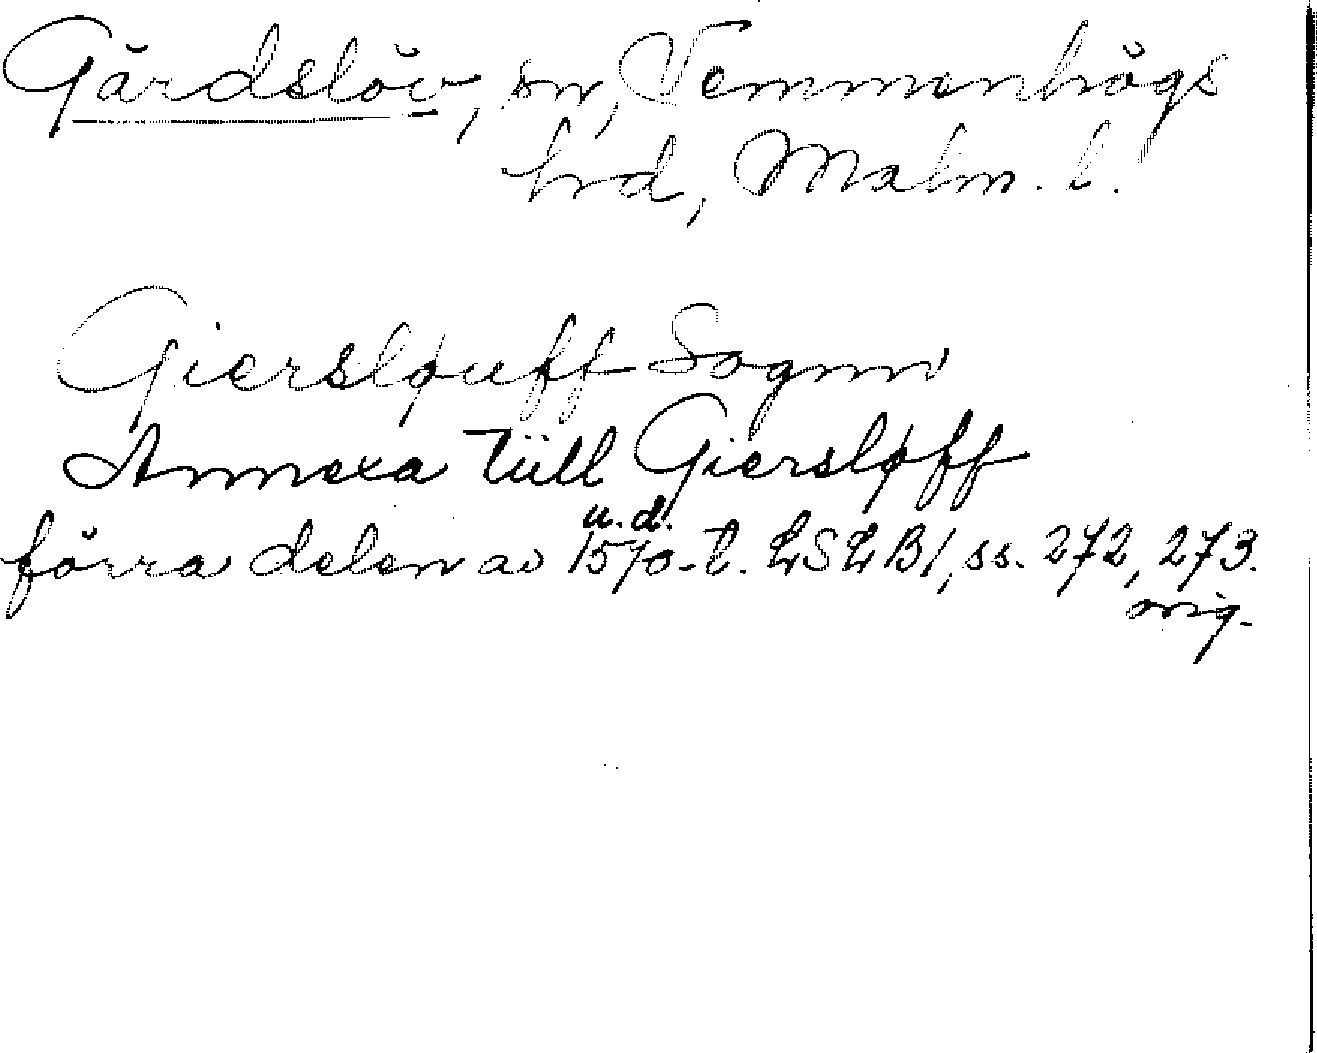 Gärdslöv, sn, Vemmenhögs
hrd, Malm. l.
Giersløuff Sognn
Annexa tüll Giersløff
u. d.
förra delen av 1570-t. LSLB1, ss. 272, 273.
orig.